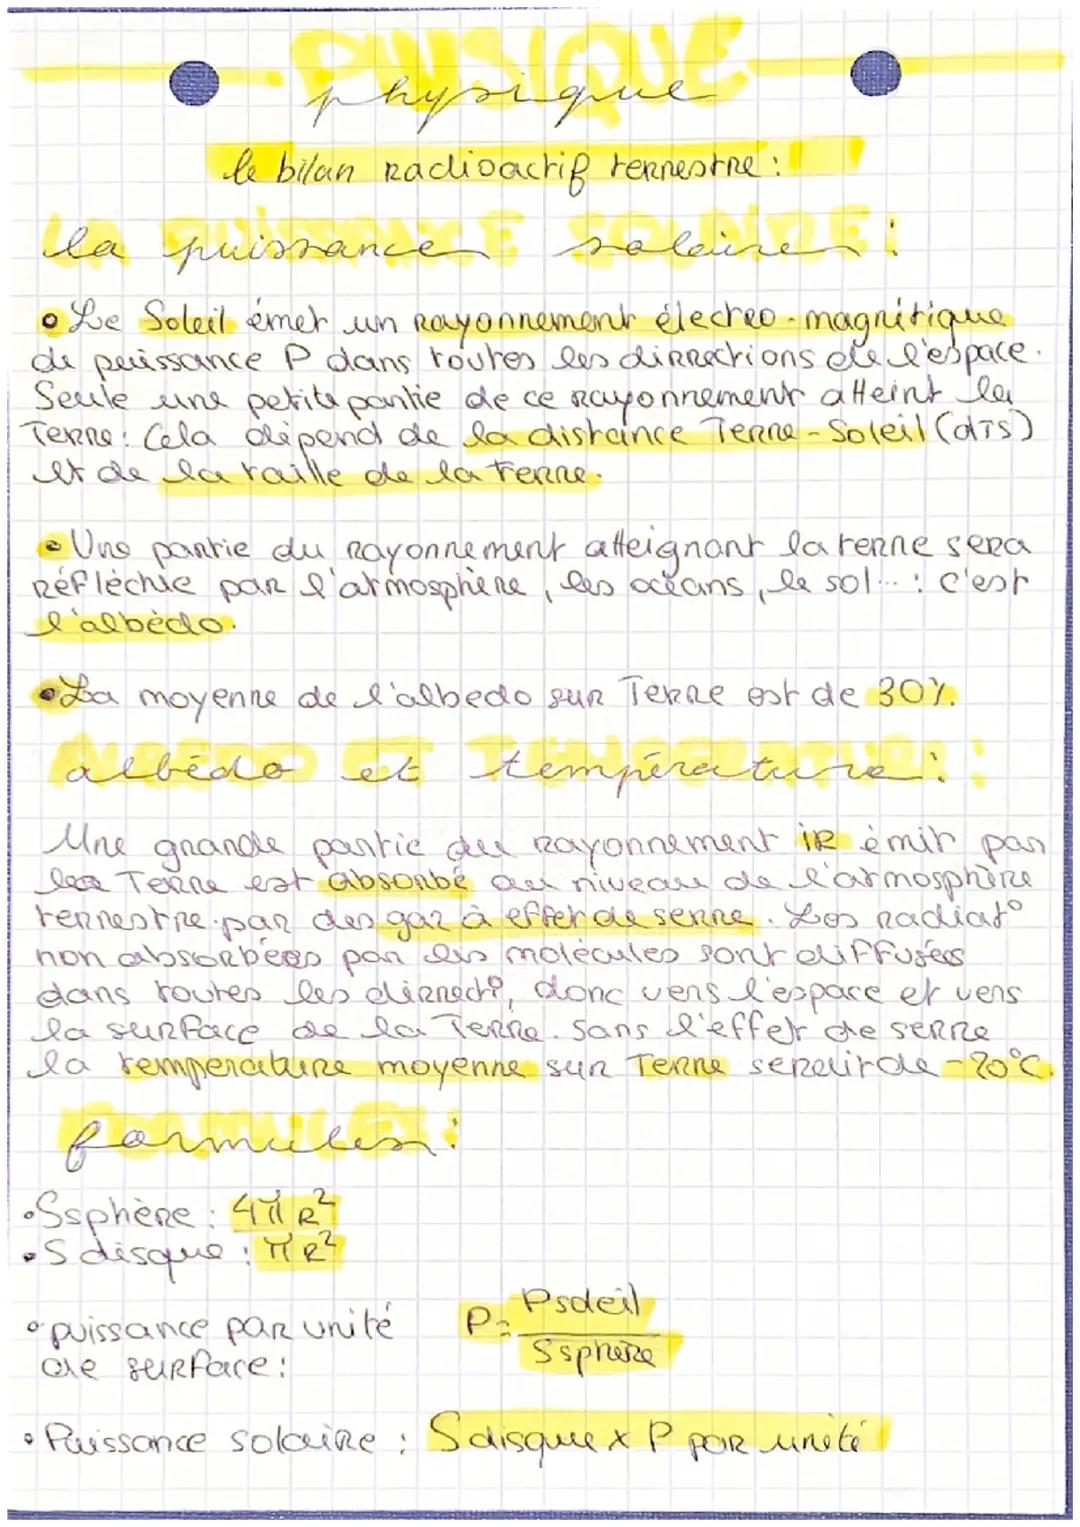 PHYSIQUE
physique
le bilan radioactif terrestre :
LA PUISSANCE SOLAIRE :
la puissance solaire :
• Le Soleil émet un rayonnement électro-magnétique
de puissance P dans toutes les dirrections de l'espace.
Seule une petite partie de ce rayonnement atteint la
Terre : Cela dépend de la distance Terre - Soleil (dTS)
et de la taille de la terre.
• Une partie du rayonnement atteignant la terre sera
réfléchie par l'atmosphère, les océans, le sol... : c'est
l'albédo.
• La moyenne de l'albedo sur Terre est de 30%.
ALBEDO ET TEMPERATURE :
albédo et température :
Une grande partie du rayonnement IR émit par
la Terre est absorbé au niveau de l'atmosphère
terrestre par des gaz à effet de serre. Les radiat°
non absorbées par les molécules sont diffusées
dans toutes les dirrect°, donc vers l'espace et vers
la surface de la Terre. Sans l'effet de serre
la temperature moyenne sur Terre serait de -20°C.
FORMULES :
formules :
• Ssphère : 4πR²
• S disque : πR²
• puissance par unité P = Psoleil
de surface : Ssphere
• Puissance solaire : Sdisque x P par unité